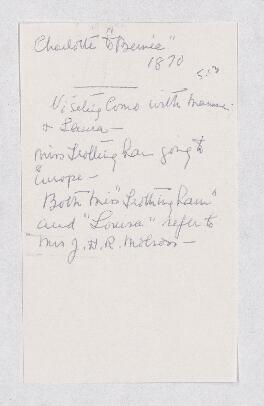 Charlotte to "Bernie"
1870
Visiting Como with Mamma
& Louisa —
Miss Frothingham going to
Europe —
Both Miss "Frothingham"
and "Louisa" refer to
Mrs J. H. R. Molson —